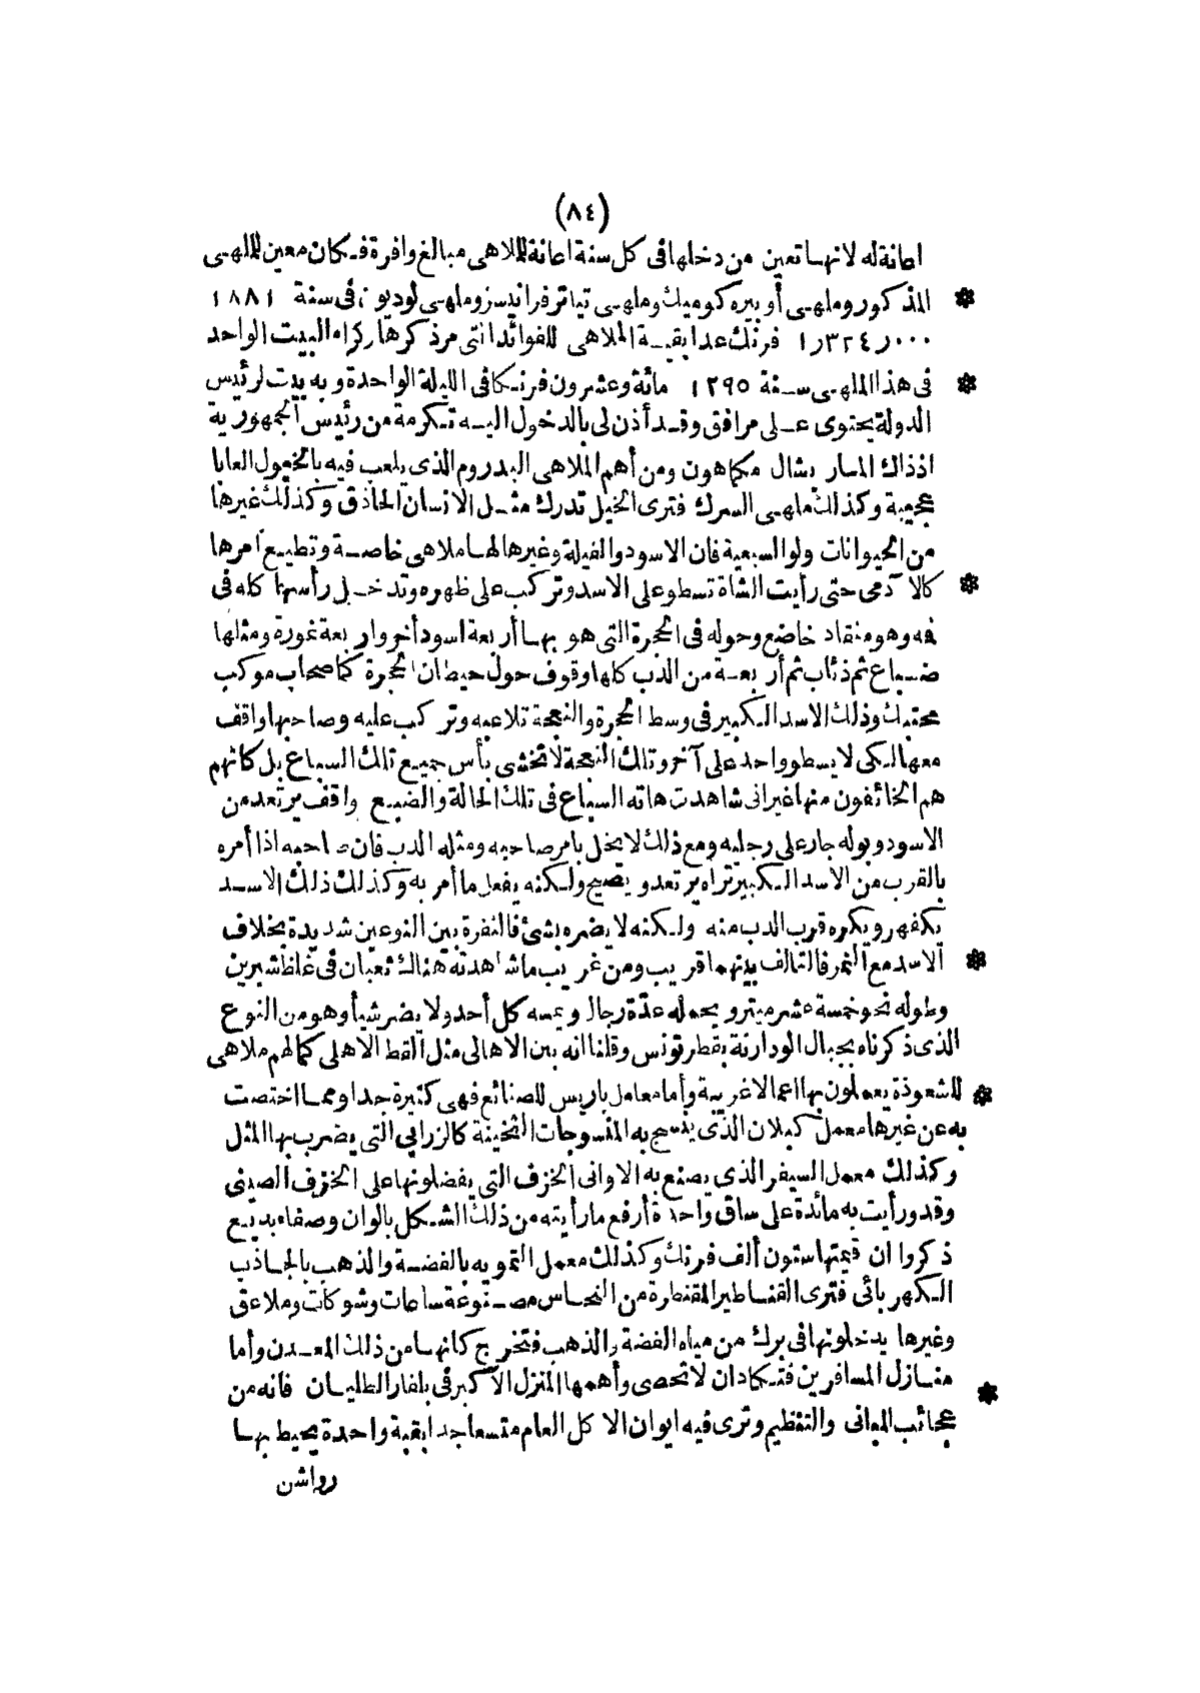 (٨٤)
اعانة له لانها تعين من دخلها فى كل سنة اعانة للملاهى مبالغ وافرة فكان معين للملهى
* المذكور وملهى أوبيره كوميك وملهى تياتر فرانديسز وملهى لوديون فى سنة ١٨٨١
١٫٣٢٤٫٠٠٠ فرنك عدا بقية الملاهى للفوائد التى مر ذكرها وكراء البيت الواحد
* فى هذا الملهى سنة ١٢٩٥ مائة وعشرون فرنكا فى الليلة الواحدة وبه بيت لرئيس
الدولة يحتوى على مرافق وقد أذن لى بالدخول اليه تكرمة من رئيس الجمهورية
اذذاك المسار يشال مكماهون ومن أهم الملاهى البدروم الذى يلعب فيه بالخيول العابا
عجيبة وكذلك ملهى السرك فترى الخيل تدرك مثل الانسان الحاذق وكذلك غيرها
من الحيوانات ولو السبعية فان الاسود والفيلة وغيرها لها ملاهى خاصة وتطيع آمرها
* كالآدمى حتى رأيت الشاة تسطو على الاسد وتركب على ظهره وتدخل رأسها كله فى
فه وهو منقاد خاضع وحوله فى الحجرة التى هو بها أربعة اسود أخر واربعة نمورة ومثلها
ضباع ثم ذئاب ثم أربعة من الدب كلها وقوف حول حيطان الحجرة كاصحاب موكب
محتبك وذلك الاسد الكبير فى وسط الحجرة والنعجة تلاعبه وتركب عليه وصاحبها واقف
معها لكى لا يسطو واحد على آخر وتلك النعجة لا تخشى بأس جميع تلك السباع بل كانهم
هم الخائفون منها غير انى شاهدت هاته السباع فى تلك الحالة والضبع واقف يرتعد من
الاسود وبوله جار على رجليه ومع ذلك لا يخل بامر صاحبه ومثله الدب فان صاحبه اذا أمره
بالقرب من الاسد الكبير تراه يرتعد ويصيح ولكنه يفعل ما أمر به وكذلك ذلك الاسد
يكفهر ويكره قرب الدب منه ولكنه لا يضره بشئ فالنفرة بين النوعين شديدة بخلاف
* الاسد مع النمر فالتالف بينهما قريب ومن غريب ما شاهدته هناك ثعبان فى غلظ شبرين
وطوله نحو خمسة عشر ميترو يحمله عدّة رجال ويمسه كل أحد ولا يضر شيأ وهو من النوع
الذى ذكرناه بجبال الودارنة بقطر تونس وقلنا انه بين الاهالى مثل القط الاهلى كما لهم ملاهى
* للشعوذة يعملون بها اعمالا غريبة وأما معامل باريس للصنائع فهى كثيرة جدا ومما اختصت
به عن غيرها معمل كبلان الذى ينسج به المنسوجات الثخينة كالزرابي التى يضرب بها المثل
وكذلك معمل السيفر الذى يصنع به الاوانى الخزف التى يفضلونها على الخزف الصينى
وقد ورأيت به مائدة على ساق واحدة أرفع ما رأيته من ذلك الشكل بالوان وصفاء بديع
ذكروا ان قيمتها ستون ألف فرنك وكذلك معمل التمويه بالفضة والذهب بالجاذب
الكهربائى فترى القناطير المقنطرة من النحاس مصنوعة ساعات وشوكات وملاعق
وغيرها يدخلونها فى برك من مياه الفضة والذهب فتخرج كانها من ذلك المعدن وأما
* منازل المسافرين فتكاد ان لا تحصى وأهمها المنزل الاكبر فى بلفار الطليان فانه من
عجائب المبانى والتنظيم وترى فيه ايوان الاكل العام متسعا جدا بقبة واحدة يحيط بها
رواشن